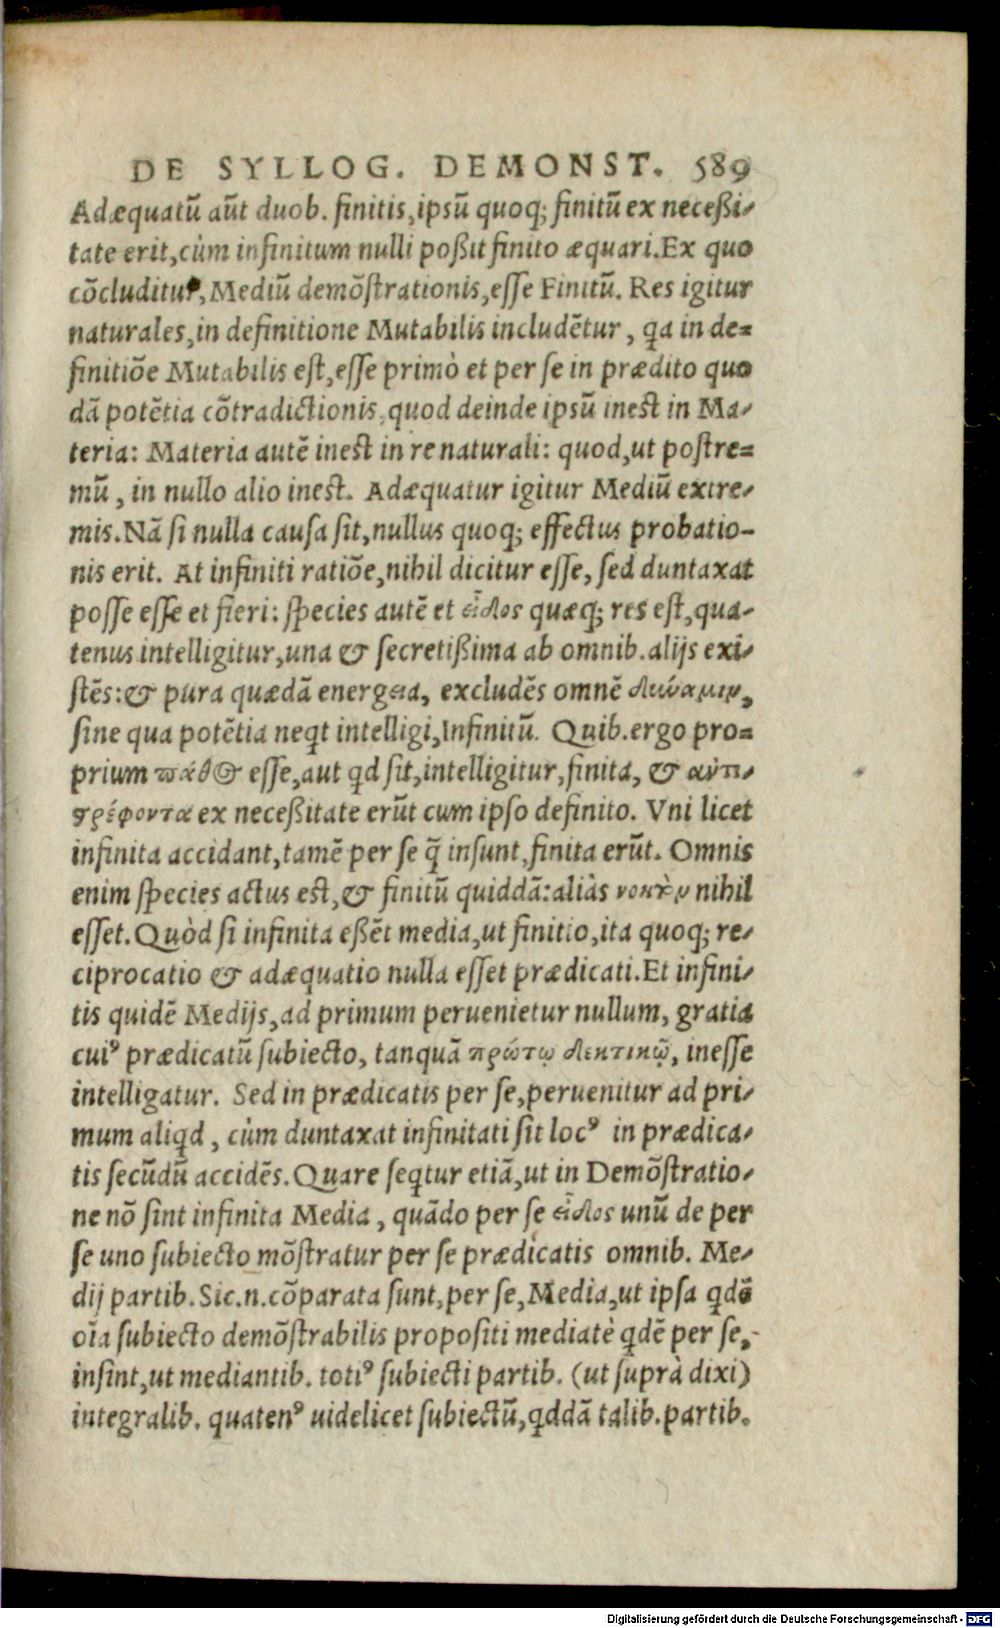 DE SYLLOG. DEMONST. 589
Adæquatũ aũt duob. finitis, ipsũ quoq; finitũ ex neceßi-
tate erit, cùm infinitum nulli poßit finito æquari. Ex quo
cõcluditur, Mediũ demõſtrationis, eſſe Finitũ. Res igitur
naturales, in definitione Mutabilis includẽtur, q̃a in de=
finitiõe Mutabilis eſt, eſſe primò et per ſe in prædito quo
dã potẽtia cõtradictionis, quod deinde ipsũ ineſt in Ma-
teria: Materia autẽ ineſt in re naturali: quod, ut poſtre=
mũ, in nullo alio ineſt. Adæquatur igitur Mediũ extre-
mis. Nã ſi nulla cauſa ſit, nullus quoq; effectus probatio-
nis erit. At infiniti ratiõe, nihil dicitur eſſe, ſed duntaxat
poſſe eſſe et fieri: ſpecies autẽ et εἶδος quæq; res eſt, qua-
tenus intelligitur, una & ſecretißima ab omnib. alijs exi-
ſtẽs: & pura quædã energeia, excludẽs omnẽ δύναμιν,
ſine qua potẽtia neq̃t intelligi, Infinitũ. Quib. ergo pro=
prium πάθος eſſe, aut q̃d ſit, intelligitur, finita, & ἀντι-
ςρέφοντα ex neceßitate erũt cum ipſo definito. Vni licet
infinita accidant, tamẽ per ſe q̃ inſunt, finita erũt. Omnis
enim ſpecies actus eſt, & finitũ quiddã: aliàs νοητὸν nihil
eſſet. Quòd ſi infinita eßẽt media, ut finitio, ita quoq; re-
ciprocatio & adæquatio nulla eſſet prædicati. Et infini-
tis quidẽ Medijs, ad primum peruenietur nullum, gratia
cuiꝰ prædicatũ ſubiecto, tanquã πρώτῳ δεκτικῷ, ineſſe
intelligatur. Sed in prædicatis per ſe, peruenitur ad pri-
mum aliq̃d, cùm duntaxat infinitati ſit locꝰ in prædica-
tis ſecũdũ accidẽs. Quare ſeq̃tur etiã, ut in Demõſtratio-
ne nõ ſint infinita Media, quãdo per ſe εἶδος unũ de per
ſe uno ſubiecto mõſtratur per ſe prædicatis omnib. Me-
dij partib. Sic.n. cõparata ſunt, per ſe, Media, ut ipſa q̃dẽ
oĩa ſubiecto demõſtrabilis propoſiti mediatè q̃dẽ per ſe,
inſint, ut mediantib. totiꝰ ſubiecti partib. (ut ſuprà dixi)
integralib. quatenꝰ uidelicet ſubiectũ, q̃ddã talib. partib.
Digitalisierung gefördert durch die Deutsche Forschungsgemeinschaft - DFG